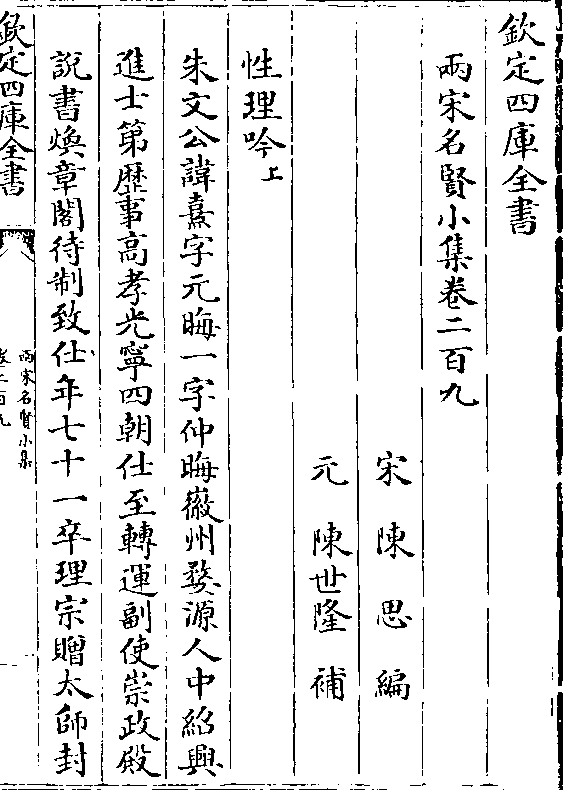 欽定四庫全書
兩宋名賢小集卷二百九
宋陳思編
元陳世隆補
性理吟上
朱文公諱熹字元晦一字仲晦徽州婺源人中紹興
進士第歷事高孝光寧四朝仕至轉運副使崇政殿
說書煥章閣待制致仕年七十一卒理宗贈太師封
欽定四庫全書
兩宋名賢小集
卷二百九